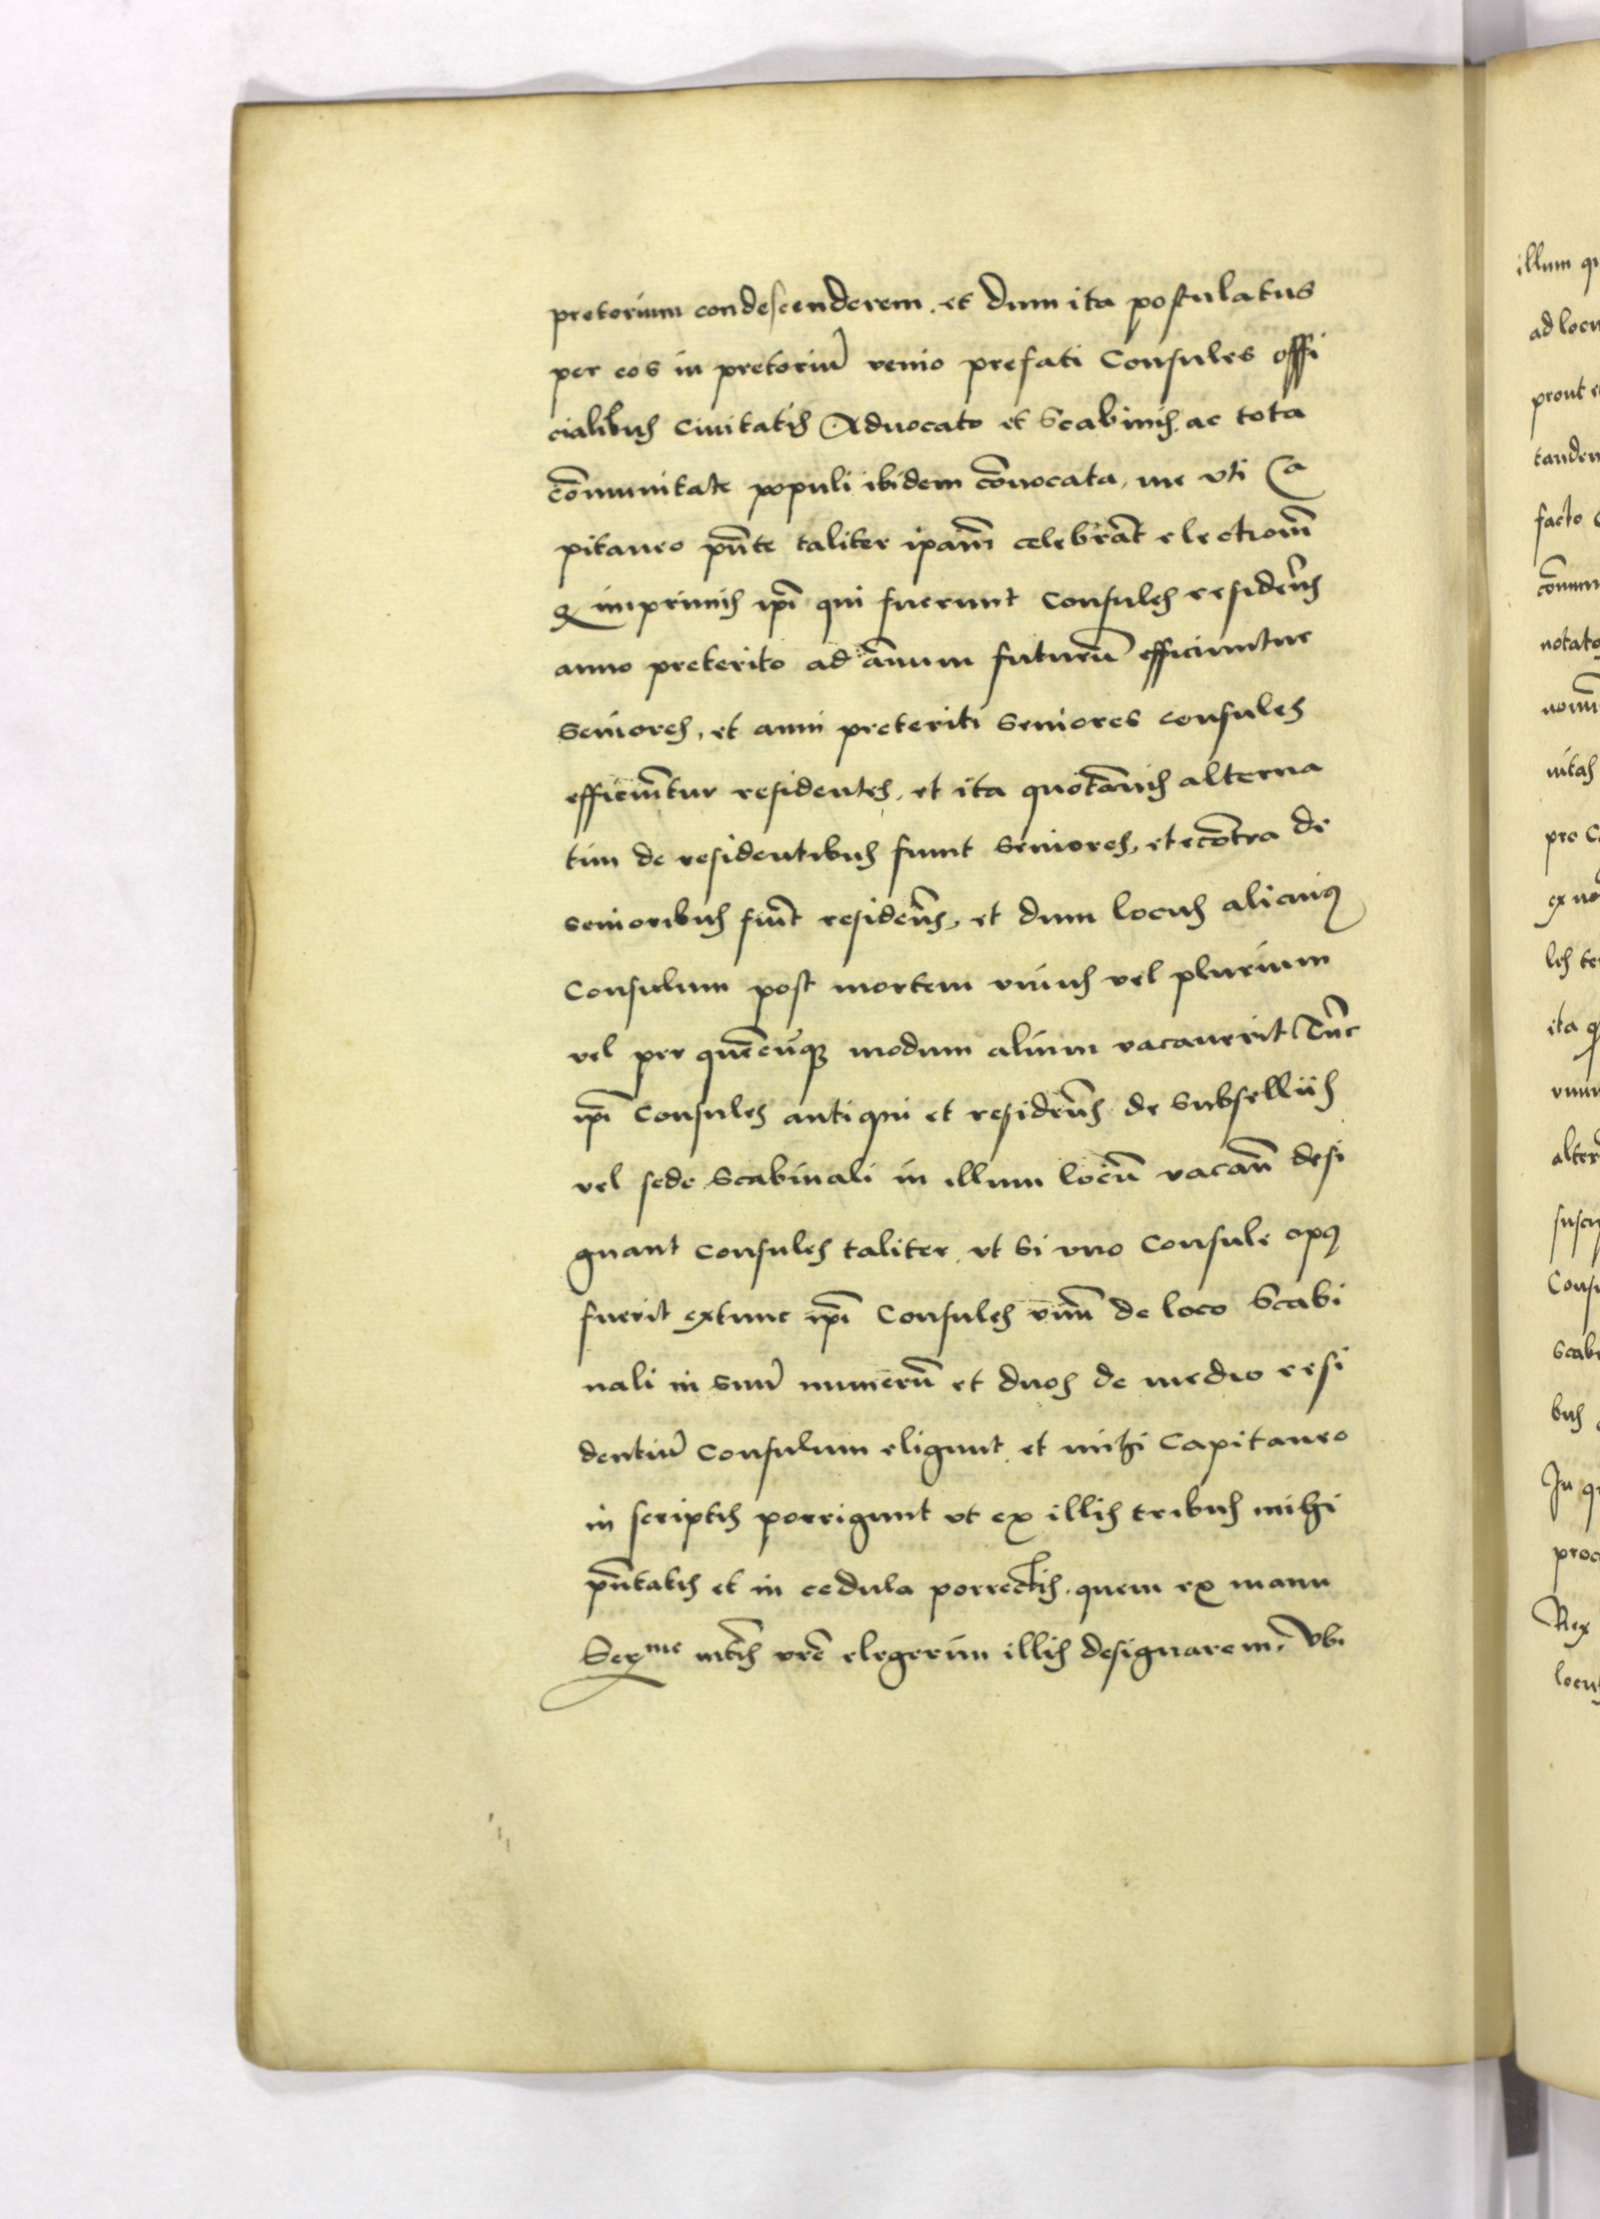 pretorium condescenderem. et dum ita postulatus
per eos in pretoriũ venio prefati Consules offi
cialibus Ciuitatis Aduocato et Scabinis ac tota
cõmunitate populi ibidem cõuocata, me vti Ca
pitaneo pñte taliter ipam̃ celebrãt electionẽ
Q imprimis ipi̅ qui fuerunt Consules residẽtes
anno preterito ad ãnum futurũ efficiuntur
Seniores, et anni preteriti Seniores consules
efficiũtur residentes, et ita quotãnis alterna
tim de residentibus fiunt Seniores, et ecõtra de
senioribus fiũt residẽtes, et dum locus alicuiꝰ
Consulum post mortem vnius vel plurium
vel per quẽcũqꝫ modum alium vacauerit Tũc
ipi̅ Consules antiqui et residẽtes de Subsellijs
vel sede Scabinali in illum locũ vacañ desi
gnant Consules taliter, vt Si vno Consule opꝰ
fuerit extunc ipi̅ Consules vnũ de loco Scabi
nali in Suũ numerũ et duos de medio resi
dentiũ Consulum eligunt, et mihi Capitaneo
in scriptis porrigunt vt ex illis tribus mihi
pñtatis et in cedula porrectis, quem ex manu
Serme mtis vrẽ elegerim illis designarem, Vbi
illum
ad locu
prout
tanden
facto
cõmun
notato
vitas
pro C
ex
ita
alter
Consu
Scabi
bus
In q
Rex
locus